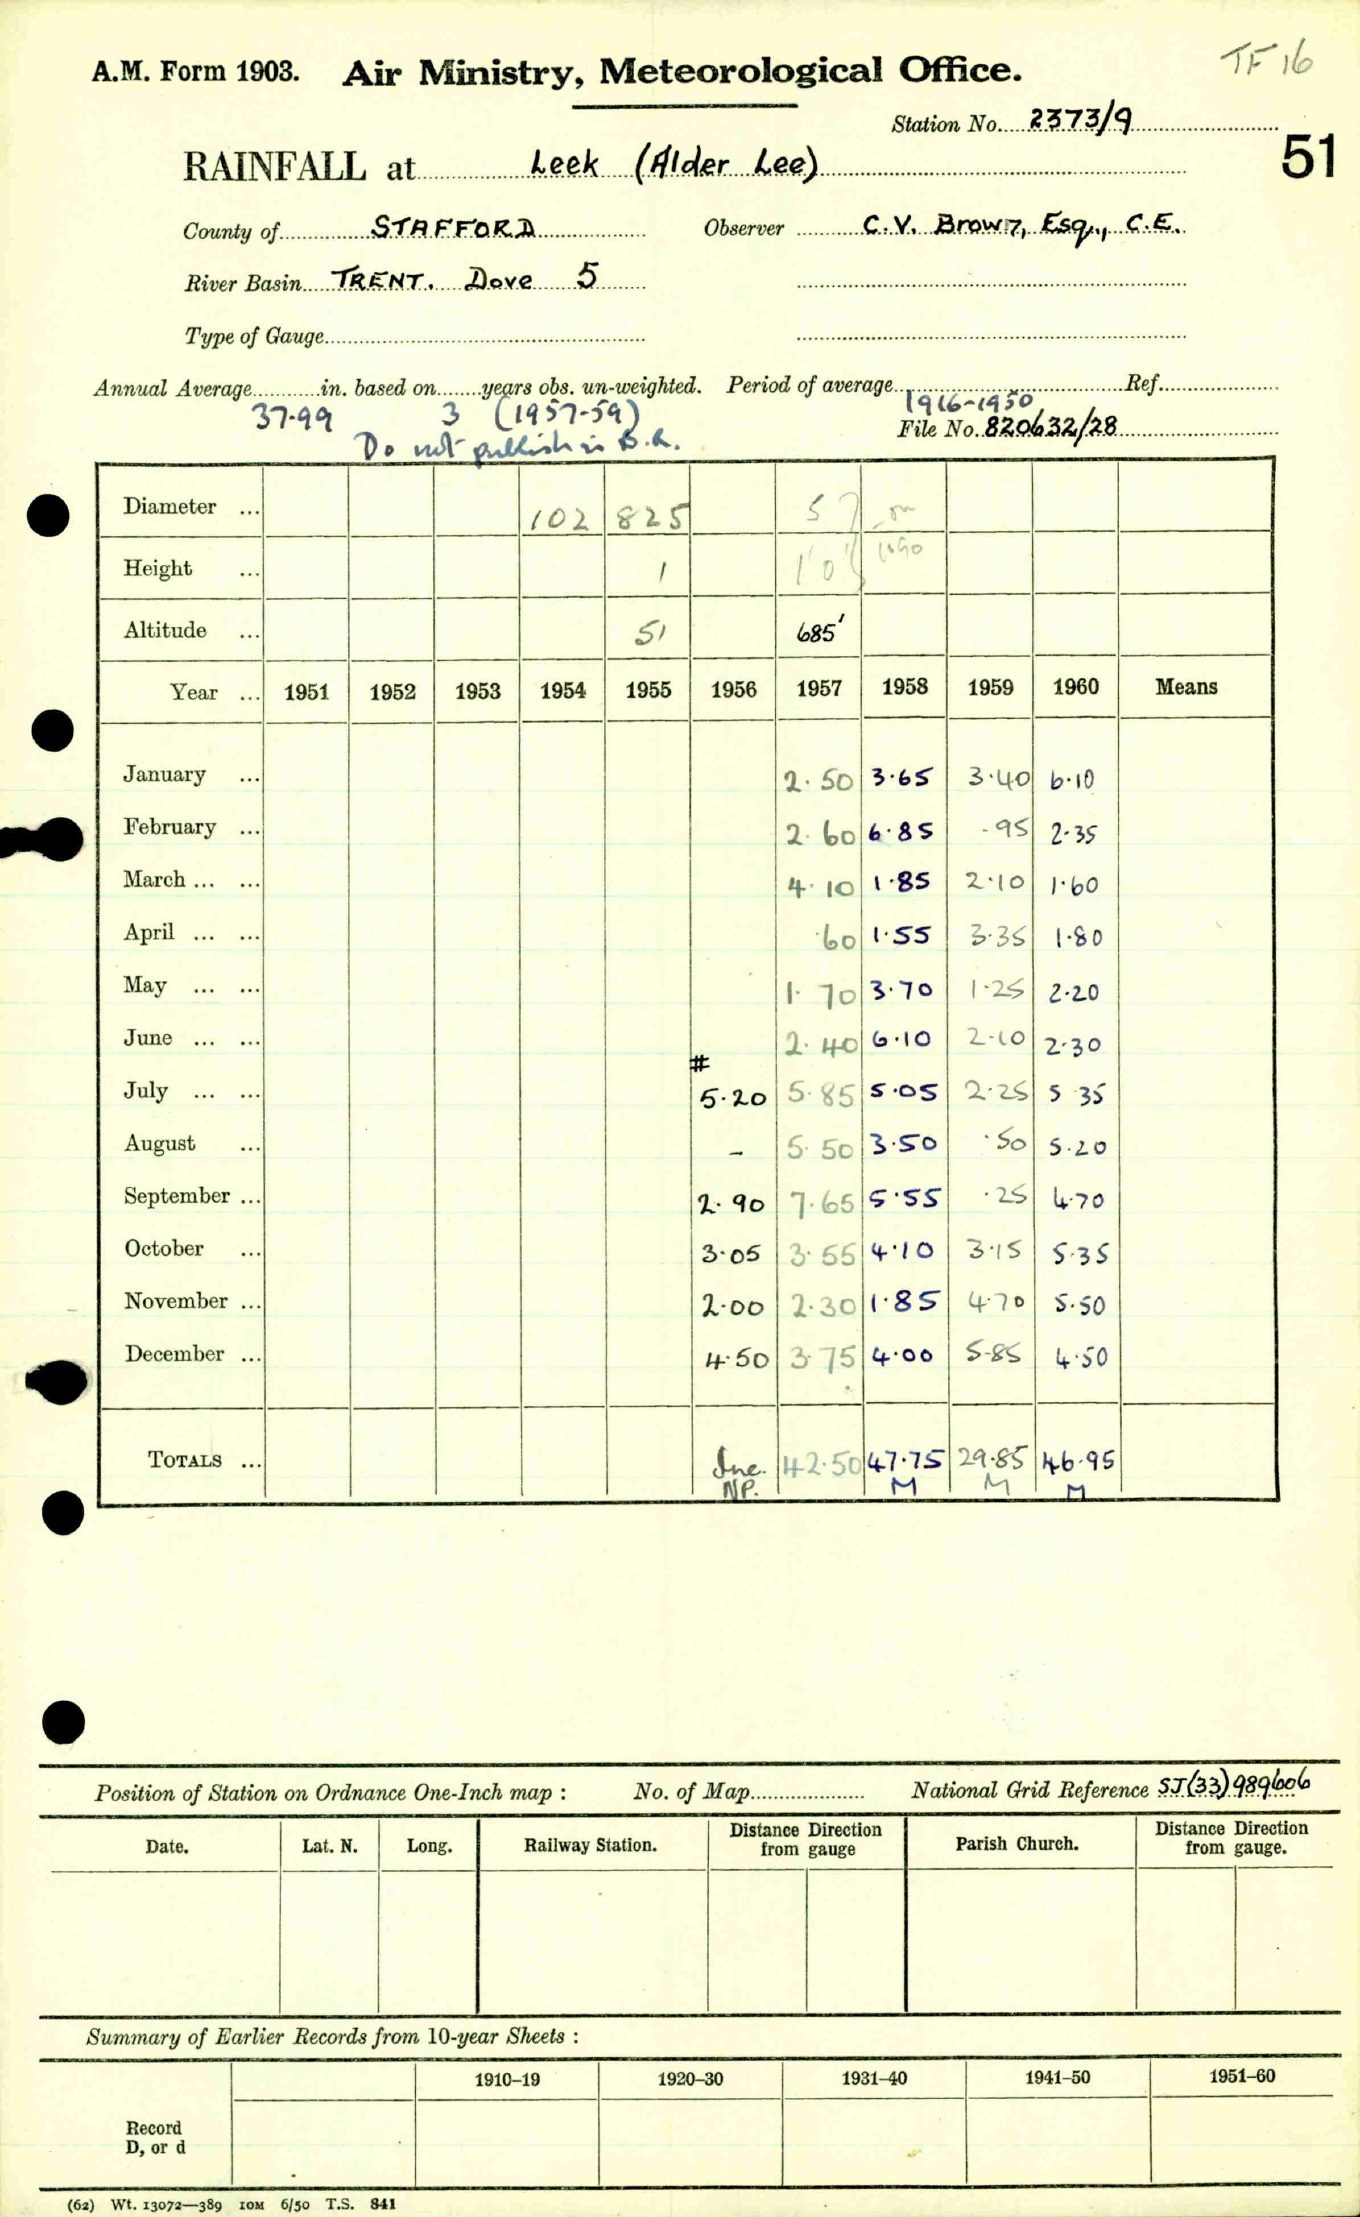 TF 16
A.M. Form 1903. Air Ministry, Meteorological Office.
Station No. 2373/9
51
RAINFALL at Leek (Alder Lee)
County of STAFFORD Observer C.V. Brown, Esq., C.E.
River Basin TRENT. Dove 5
Type of Gauge
Annual Average in. based on years obs. un-weighted. Period of average Ref
37.99 3 (1957-59) 1916-1950
File No. 820632/28
Do not publish in B.R.
Diameter ... 102 825 5
Height ... 1 1'0"
Altitude ... 51 685'
Year ... 1951 1952 1953 1954 1955 1956 1957 1958 1959 1960 Means
January ... 2.50 3.65 3.40 6.10
February ... 2.60 6.85 .95 2.35
March ... ... 4.10 1.85 2.10 1.60
April ... ... .60 1.55 3.35 1.80
May ... ... 1.70 3.70 1.25 2.20
June ... ... 2.40 6.10 2.10 2.30
#
July ... ... 5.20 5.85 5.05 2.25 5 35
August ... - 5.50 3.50 .50 5.20
September ... 2.90 7.65 5.55 .25 4.70
October ... 3.05 3.55 4.10 3.15 5.35
November ... 2.00 2.30 1.85 4.70 5.50
December ... 4.50 3.75 4.00 5.85 4.50
TOTALS ... Inc. 42.50 47.75 29.85 46.95
NP. M M M
Position of Station on Ordnance One-Inch map : No. of Map National Grid Reference SJ(33)989606
Date. Lat. N. Long. Railway Station. Distance from Direction gauge Parish Church. Distance from Direction gauge.
Summary of Earlier Records from 10-year Sheets :
1910–19 1920–30 1931–40 1941–50 1951–60
Record
D, or d
(62) Wt. 13072—389 10M 6/50 T.S. 841